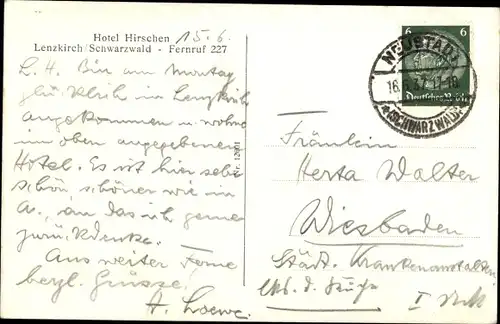 Hotel Hirschen 15.6.
Lenzkirch/Schwarzwald - Fernruf 227
L. H. Bin am Montag
glücklich in Lenzkirch
angekommen u. wohne
im oben angegebenen
Hotel. Es ist hier sehr
schön, schöner wie in
A., an das ich gerne
zurückdenke.
Aus weiter Ferne
herzl. Grüsse!
A. Loewe.
6 6
NEUSTADT
16.6.37.17-18
(SCHWARZWALD)
Deutsches Reich
Fräulein
Herta Walter
Wiesbaden
Städt. Krankenanstalten